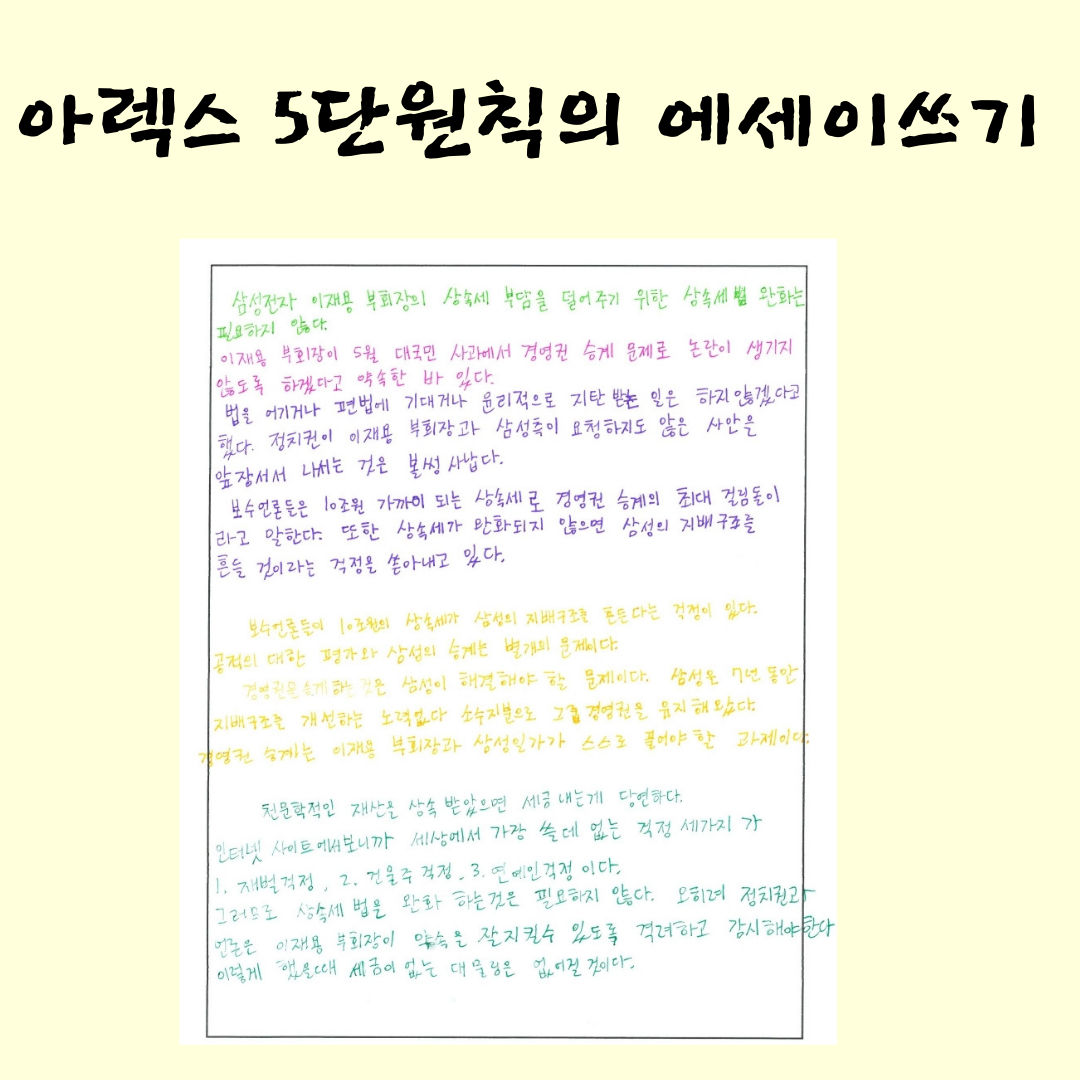 아렉스 5단원칙의 에세이쓰기
삼성전자 이재용 부회장의 상속세 부담을 덜어주기 위한 상속세법 완화는
필요하지 않다.
이재용 부회장이 5월 대국민 사과에서 경영권 승계 문제로 논란이 생기지
않도록 하겠다고 약속한 바 있다.
법을 어기거나 편법에 기대거나 윤리적으로 지탄 받는 일은 하지않겠다고
했다. 정치권이 이재용 부회장과 삼성측이 요청하지도 않은 사안을
앞장서서 나서는 것은 볼썽사납다.
보수언론들은 10조원 가까이 되는 상속세로 경영권 승계의 최대 걸림돌이
라고 말한다. 또한 상속세가 완화되지 않으면 삼성의 지배구조를
흔들 것이라는 걱정을 쏟아내고 있다.
보수언론들이 10조원의 상속세가 삼성의 지배구조를 흔든다는 걱정이 있다.
공적의 대한 평가와 삼성의 승계는 별개의 문제이다.
경영권을 승계하는 것은 삼성이 해결해야 할 문제이다. 삼성은 7년 동안
지배구조를 개선하는 노력없다 소수지분으로 그룹 경영권을 유지해왔다.
경영권 승계는 이재용 부회장과 삼성일가가 스스로 풀어야 할 과제이다.
천문학적인 재산을 상속 받았으면 세금 내는게 당연하다.
인터넷 사이트에서보니까 세상에서 가장 쓸데 없는 걱정 세가지 가
1. 재벌걱정, 2. 건물주 걱정, 3. 연예인걱정 이다.
그러므로 상속세 법을 완화 하는것은 필요하지 않다. 오히려 정치권과
언론은 이재용 부회장이 약속을 잘지킬수 있도록 격려하고 감시해야한다
이렇게 했을때 세금이 없는 대물림은 없어질 것이다.